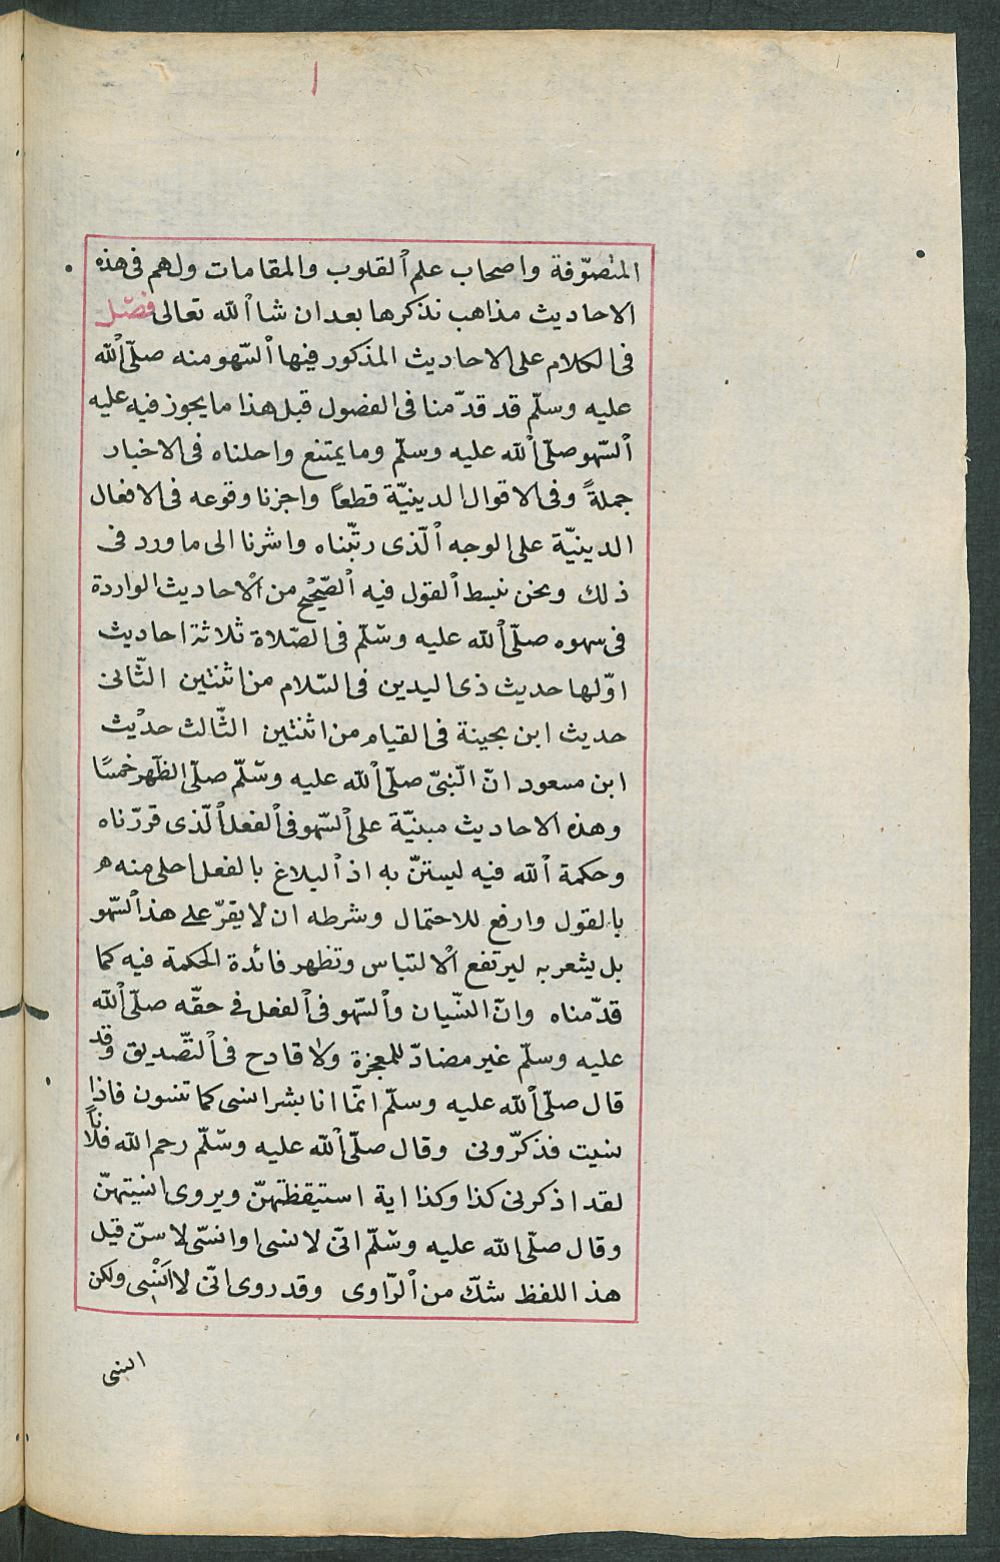 المتصوّفة واصحاب علم القلوب والمقامات ولهم فى هذه
الاحاديث مذاهب نذكرها بعد ان شا الله تعالى فصّل
فى الكلام على الاحاديث المذكور فيها السّهو منه صلّى الله
عليه وسلّم قد قدّمنا فى الفصول قبل هذا ما يجوز فيه عليه
السّهو صلّى الله عليه وسلّم وما يمتنع واحلناه فى الاخبار
جملةً وفى الاقوال الدينيّة قطعًا واجزنا وقوعه فى الافعال
الدينيّة على الوجه الّذى رتّبناه واشرنا الى ما ورد فى
ذلك ونحن نبسط القول فيه الصّحيح من الاحاديث الواردة
فى سهوه صلّى الله عليه وسّلم فى الصّلاة ثلاثة احاديث
اوّلها حديث ذى اليدين فى السّلام من اثنتين الثّانى
حديث ابن بحينة فى القيام من اثنتين الثّالث حديث
ابن مسعود انّ النّبىّ صلّى الله عليه وسّلّم صلّى الظّهر خمسًا
وهذه الاحاديث مبنيّة على السّهو فى الفعل الّذى قررّناه
وحكمة الله فيه ليستنّ به اذ البلاغ بالفعل احلى منه
بالقول وارفع للاحتمال وشرطه ان لا يقرّ على هذا السّهو
بل يشعر به ليرتفع الالتباس وتظهر فائدة الحكمة فيه كما
قدّمناه وانّ النسّيان والسّهو فى الفعل فى حقّه صلّى الله
عليه وسلّم غير مضادّ للمعجزة ولا قادح فى التّصديق وقد
قال صلّى الله عليه وسلّم انمّا انا بشر انسى كما تنسون فاذا
نسيت فذكرّونى وقال صلّى الله عليه وسّلّم رحم الله فلانًا
لقد اذكرنى كذا وكذا اية استيقظتهنّ ويروى انسيتهنّ
وقال صلّى الله عليه وسّلّم انّى لانسى او انسّى لاسنّ قيل
هذا اللفظ شكّ من الرّاوى وقد روى انّى لا اَنْسى ولكن
انسى